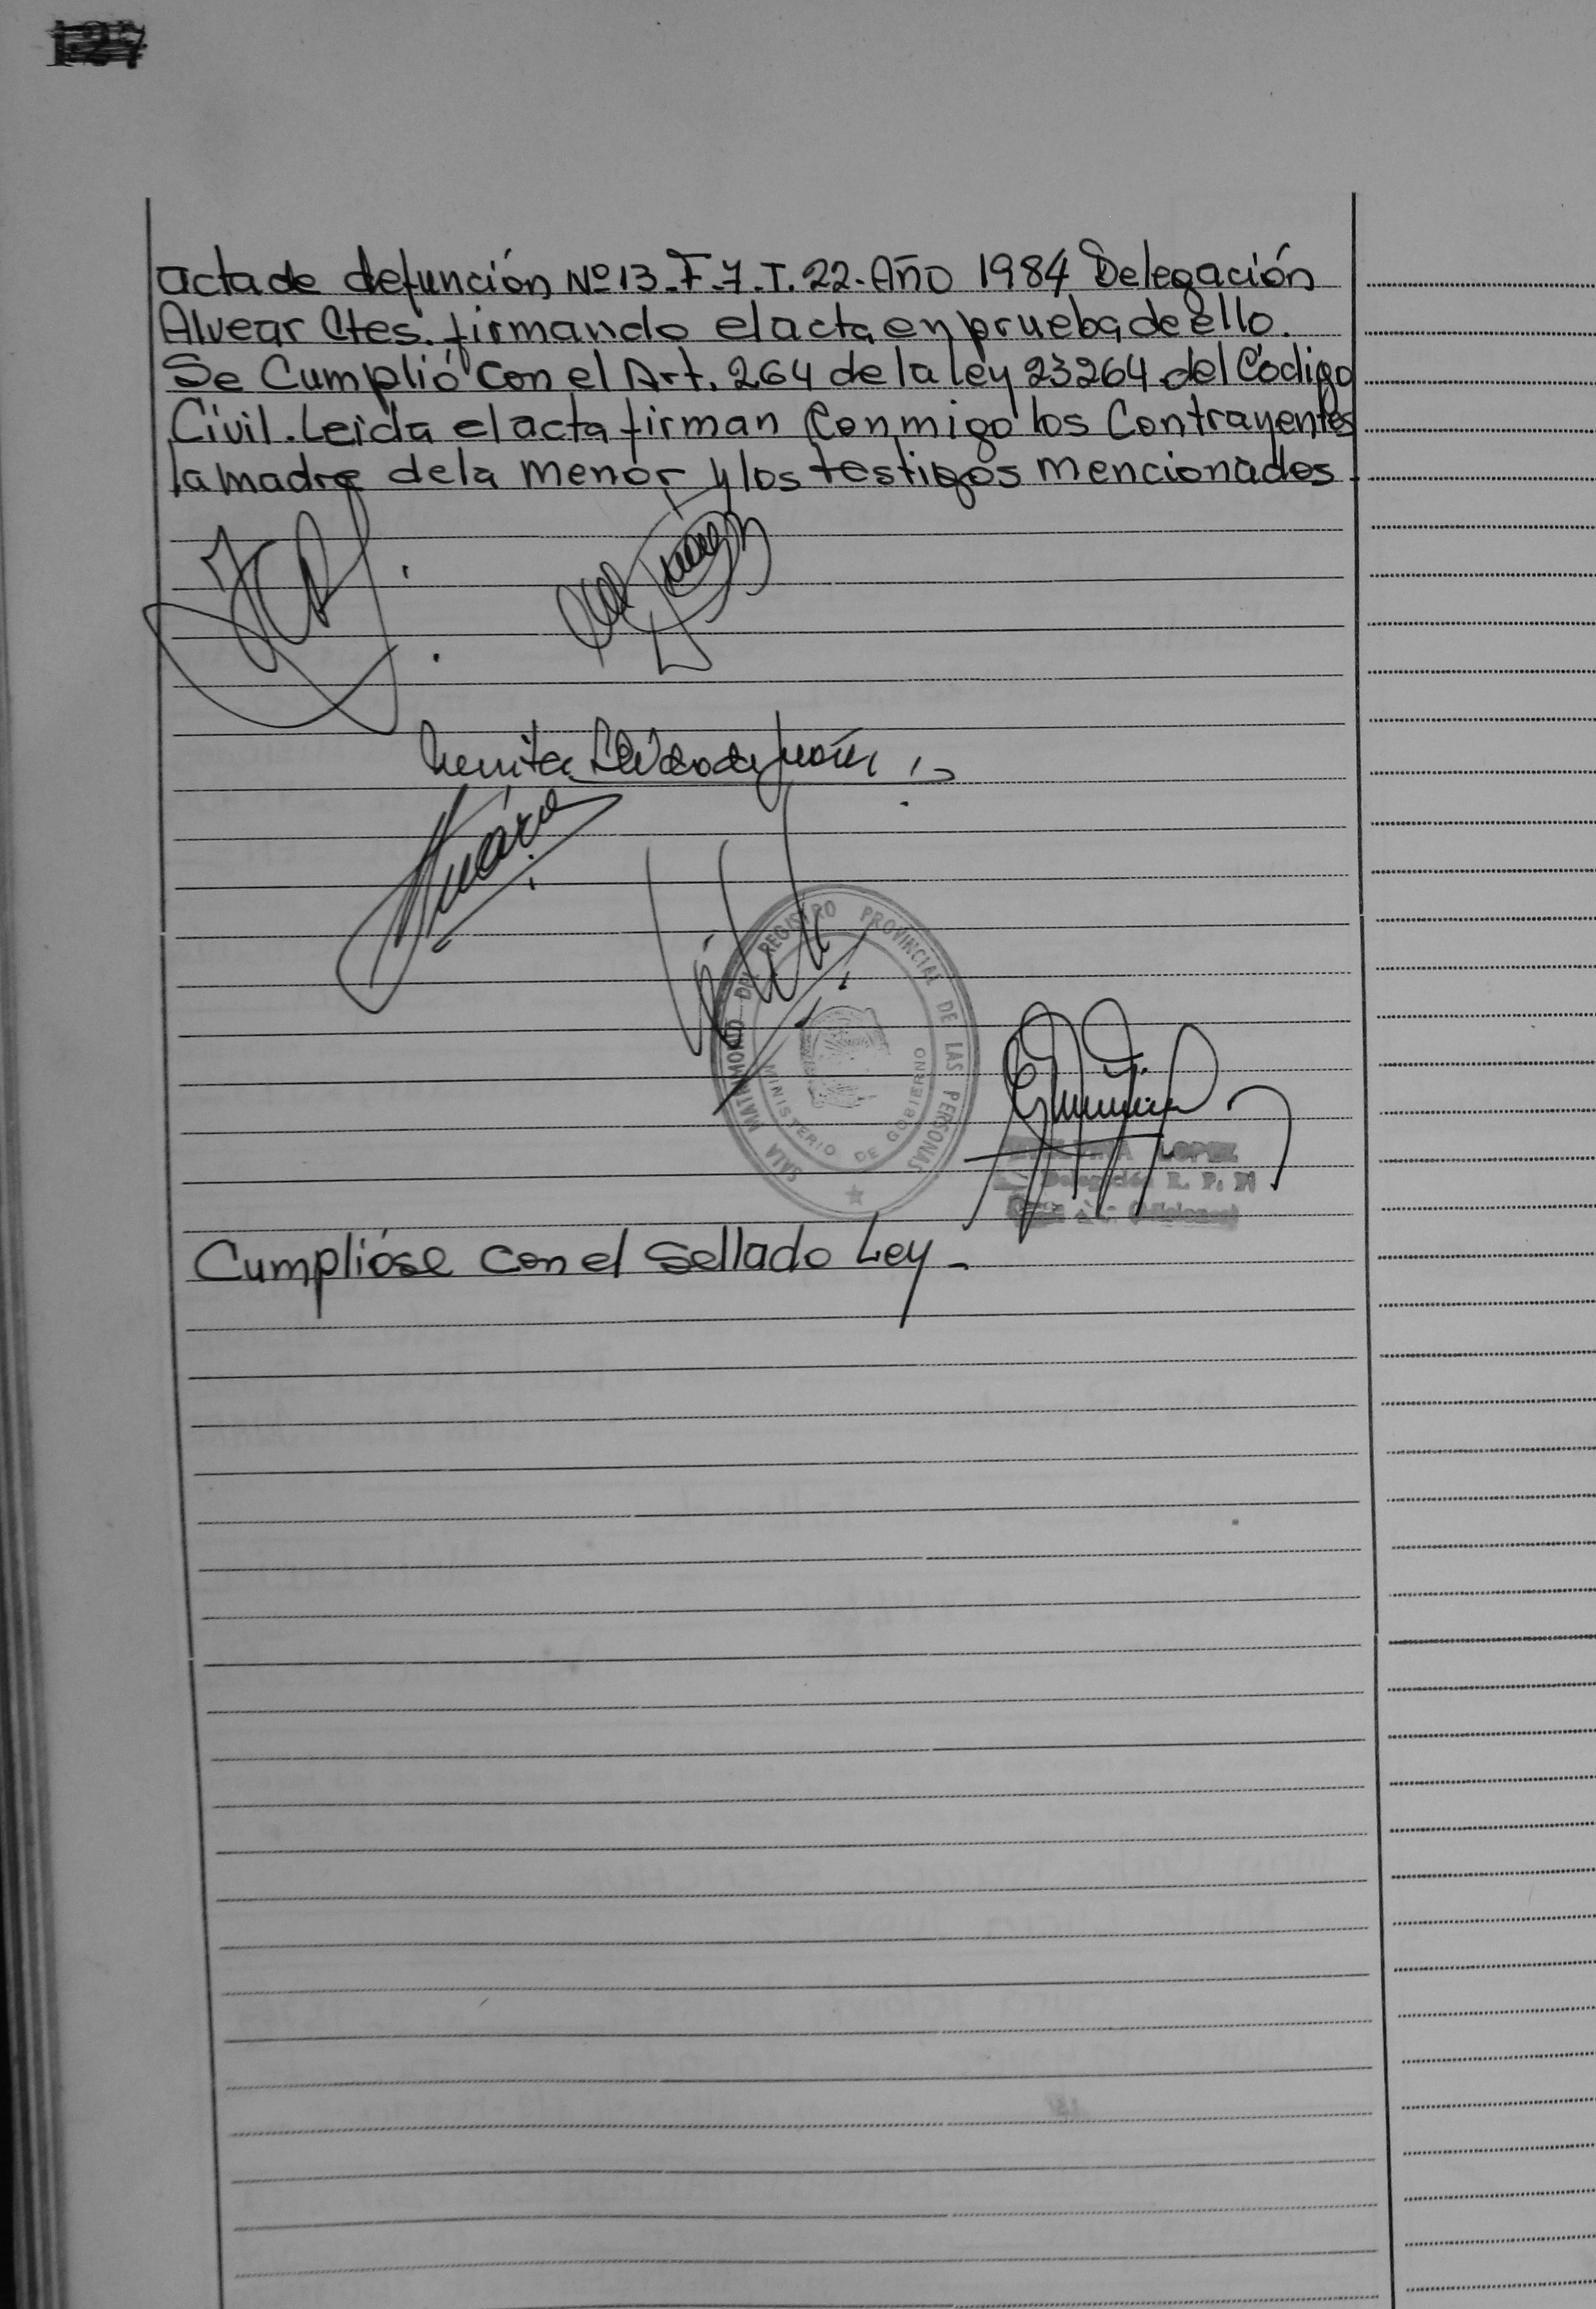 acta de defunción Nº 13. F. 7. T. 22. Año 1984 Delegación
Alvear Ctes. firmando el acta en prueba de ello.
Se Cumplió con el Art. 264 de la ley 23264 del Código
Civil. Leida el acta firman conmigo los Contrayentes
la madre de la menor y los testigos mencionados.
SALA MATRIMONIO DEL REGISTRO PROVINCIAL DE LAS PERSONAS
MINISTERIO DE GOBIERNO
LOPEZ
Delegación R. P. P.
Cumplióse con el Sellado Ley -